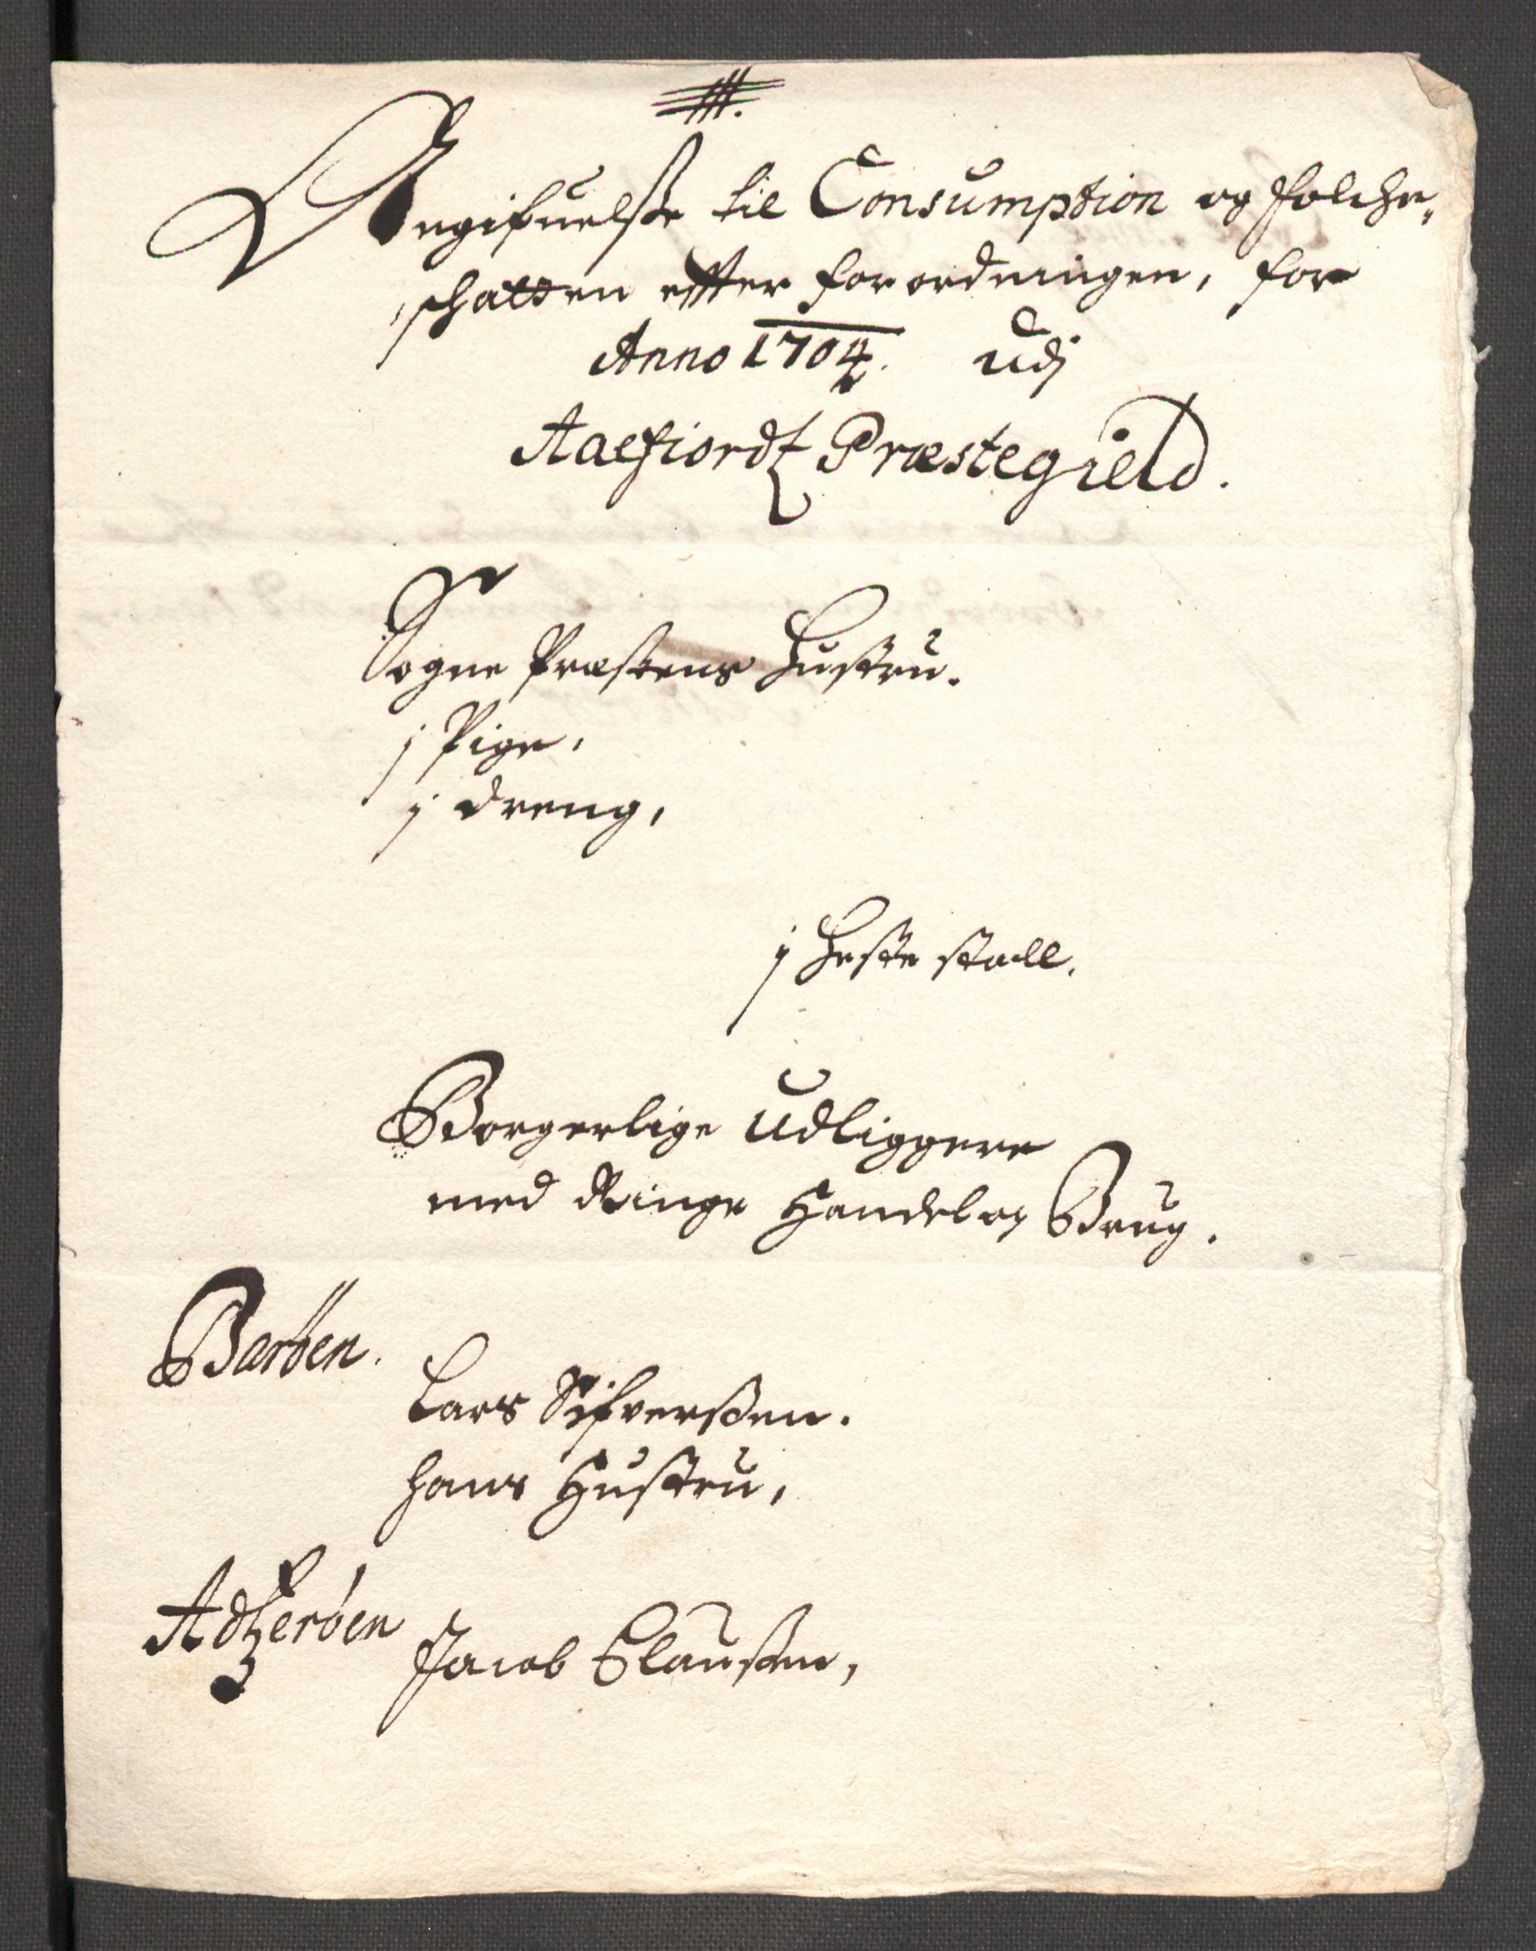 Angifuelße til Consumption og folche„
schatten effter forordningen, for
Anno 1704. Udj
Aaefiordz Præstegield.
Sogne Præstens Hustru.
j Pige,
j dreng,
j Heste stall.
Borgerlige Udliggere
med Ringe Handel og Brug.
Barøen.
Lars Sifverßen.
hans Hustru,
Adtzerøen
Jacob Claußen,